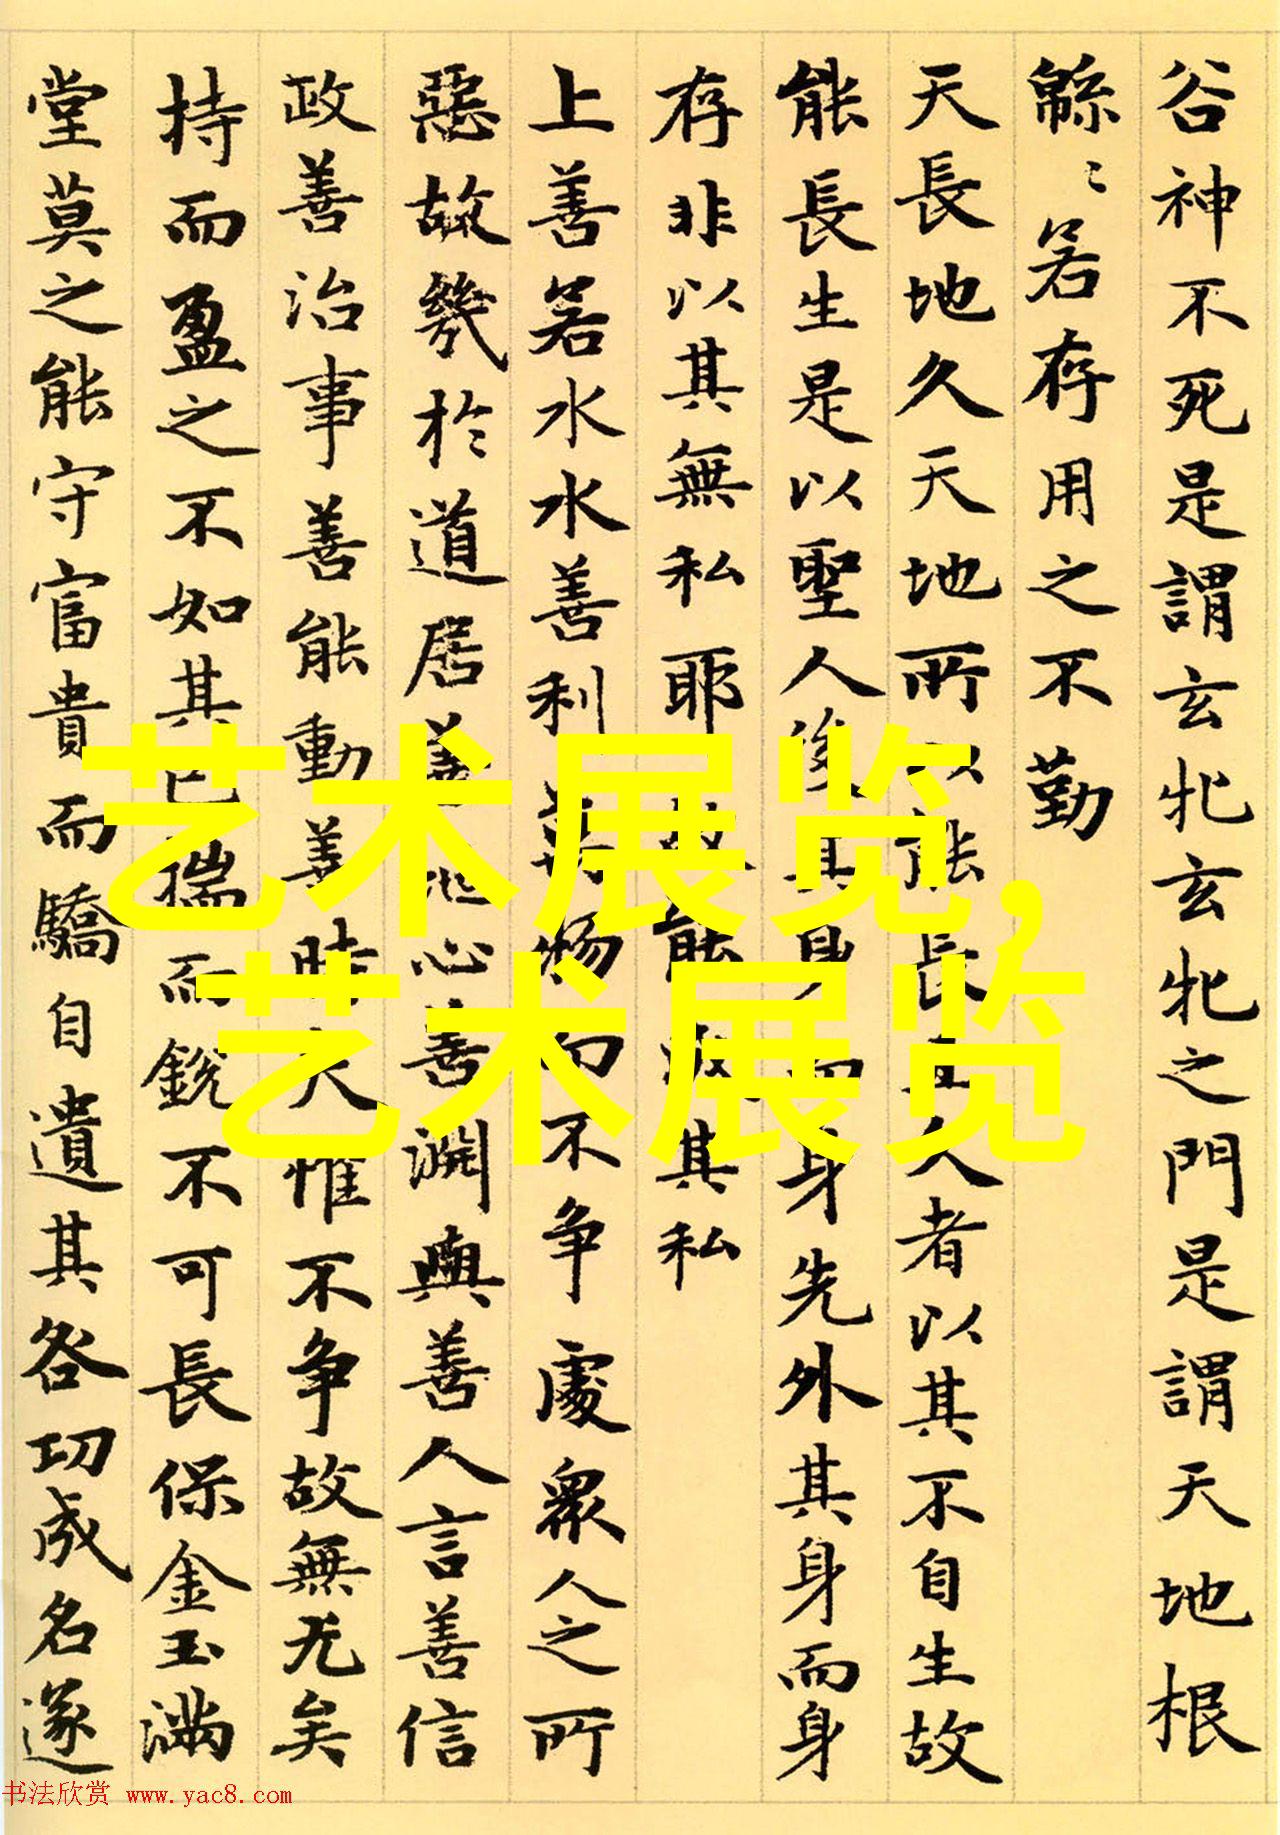 谷神不死是謂玄牝玄牝之門是謂天地根
緜〻若存用之不勤
天長地久天地所以能長且久者以其不自生故
能長生是以聖人後其身而身先外其身而身
存非以其無私耶故能成其私
上善若水水善利萬物而不争處衆人之所
惡故幾於道居善地心善淵與善人言善信
政善治事善能動善時夫惟不争故無尤矣
持而盈之不如其已揣而銳不可長保金玉滿
堂莫之能守富貴而驕自遺其咎功成名遂
艺术展览,
艺术展览
书法欣赏 www.yac8.com